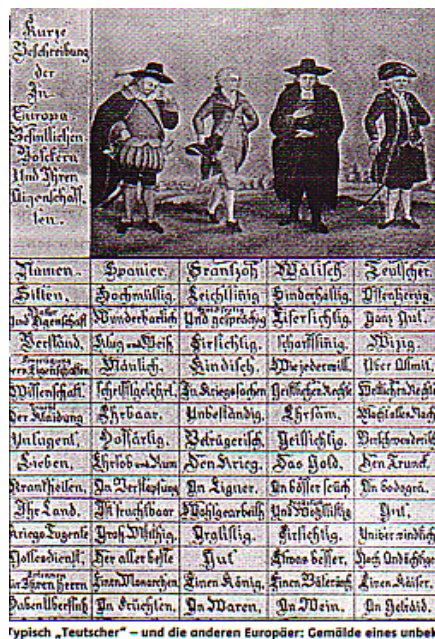 Kurze
Beschreibung
der
In
Europa
Befintlichen
Völckern
Und Ihren
Aigenschaff
ten.
Namen. Spanier. Frantzoß Wälisch. Teutscher.
Sitten. Hochmüttig. Leichtsinig Hinderhaltig. Offenherzig.
Und Eigenschaft Wunderbarlich Und gesprächig Eifersichtig. Ganz Gut.
Verstand. Klug und Weiß Firsichtig. Scharffsinig. Wizig.
Mänlich. Kindisch. Wie jederwill. Über Allmit.
Wissenschaft. Schrifftgelehrt. In Kriegssachen Geistlichen Rechte Weltlichen Rechte
Der Klaidung Ehrbaar. Unbeständig. Ehrsam. Macht alles Nach
Untugent. Hoffärtig. Betrügerisch. Geilsichtig. Verschwenderisch
Lieben. Ehrlob und Rum Den Krieg. Das Gold. Den Trunck.
Krankheiten. An Verstopfung An Eigner. An böser seüch An bodogra.
Ihr Land. Ist fruchtbaar Wohlgearbeith Und Wohllistig Gut.
Kriegs Tugente Groß Müthig. Arglistig. Firsichtig. Uniberwindlich
Gottesdienst. Der aller beste Gut Etwas besser. Noch Andächtiger
Für Ihren Herrn Einen Monarchen. Einen König. Einen Bäterärch Einen Käiser.
Haben Überfluß An Früchten. An Waren. An Wein. An Getraid.
Typisch „Teutscher“ – und die anderen Europäer: Gemälde eines unbe